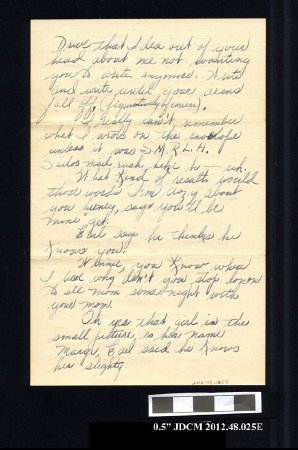 Drive that idea out of your
head about me not wanting
you to write anymore. Write
and write until your arms
fall off! (figuratively of course).
I really can't remember
what I wrote on the envelope
unless it was S.M.R.L.H.
Sailor mail rush like h— uh.
What kind of results would
those words I'm crazy about
you honey, says you'll be
mine get.
Earl says he thinks he
knows you.
Winnie, you know where
I live why don't you stop down
to see mom some night with
your mom
Oh yes that girl in the
small picture, is her name
Marge, Earl said he knows
her slightly
2012.48.025E
0.5" JDCM 2012.48.025E